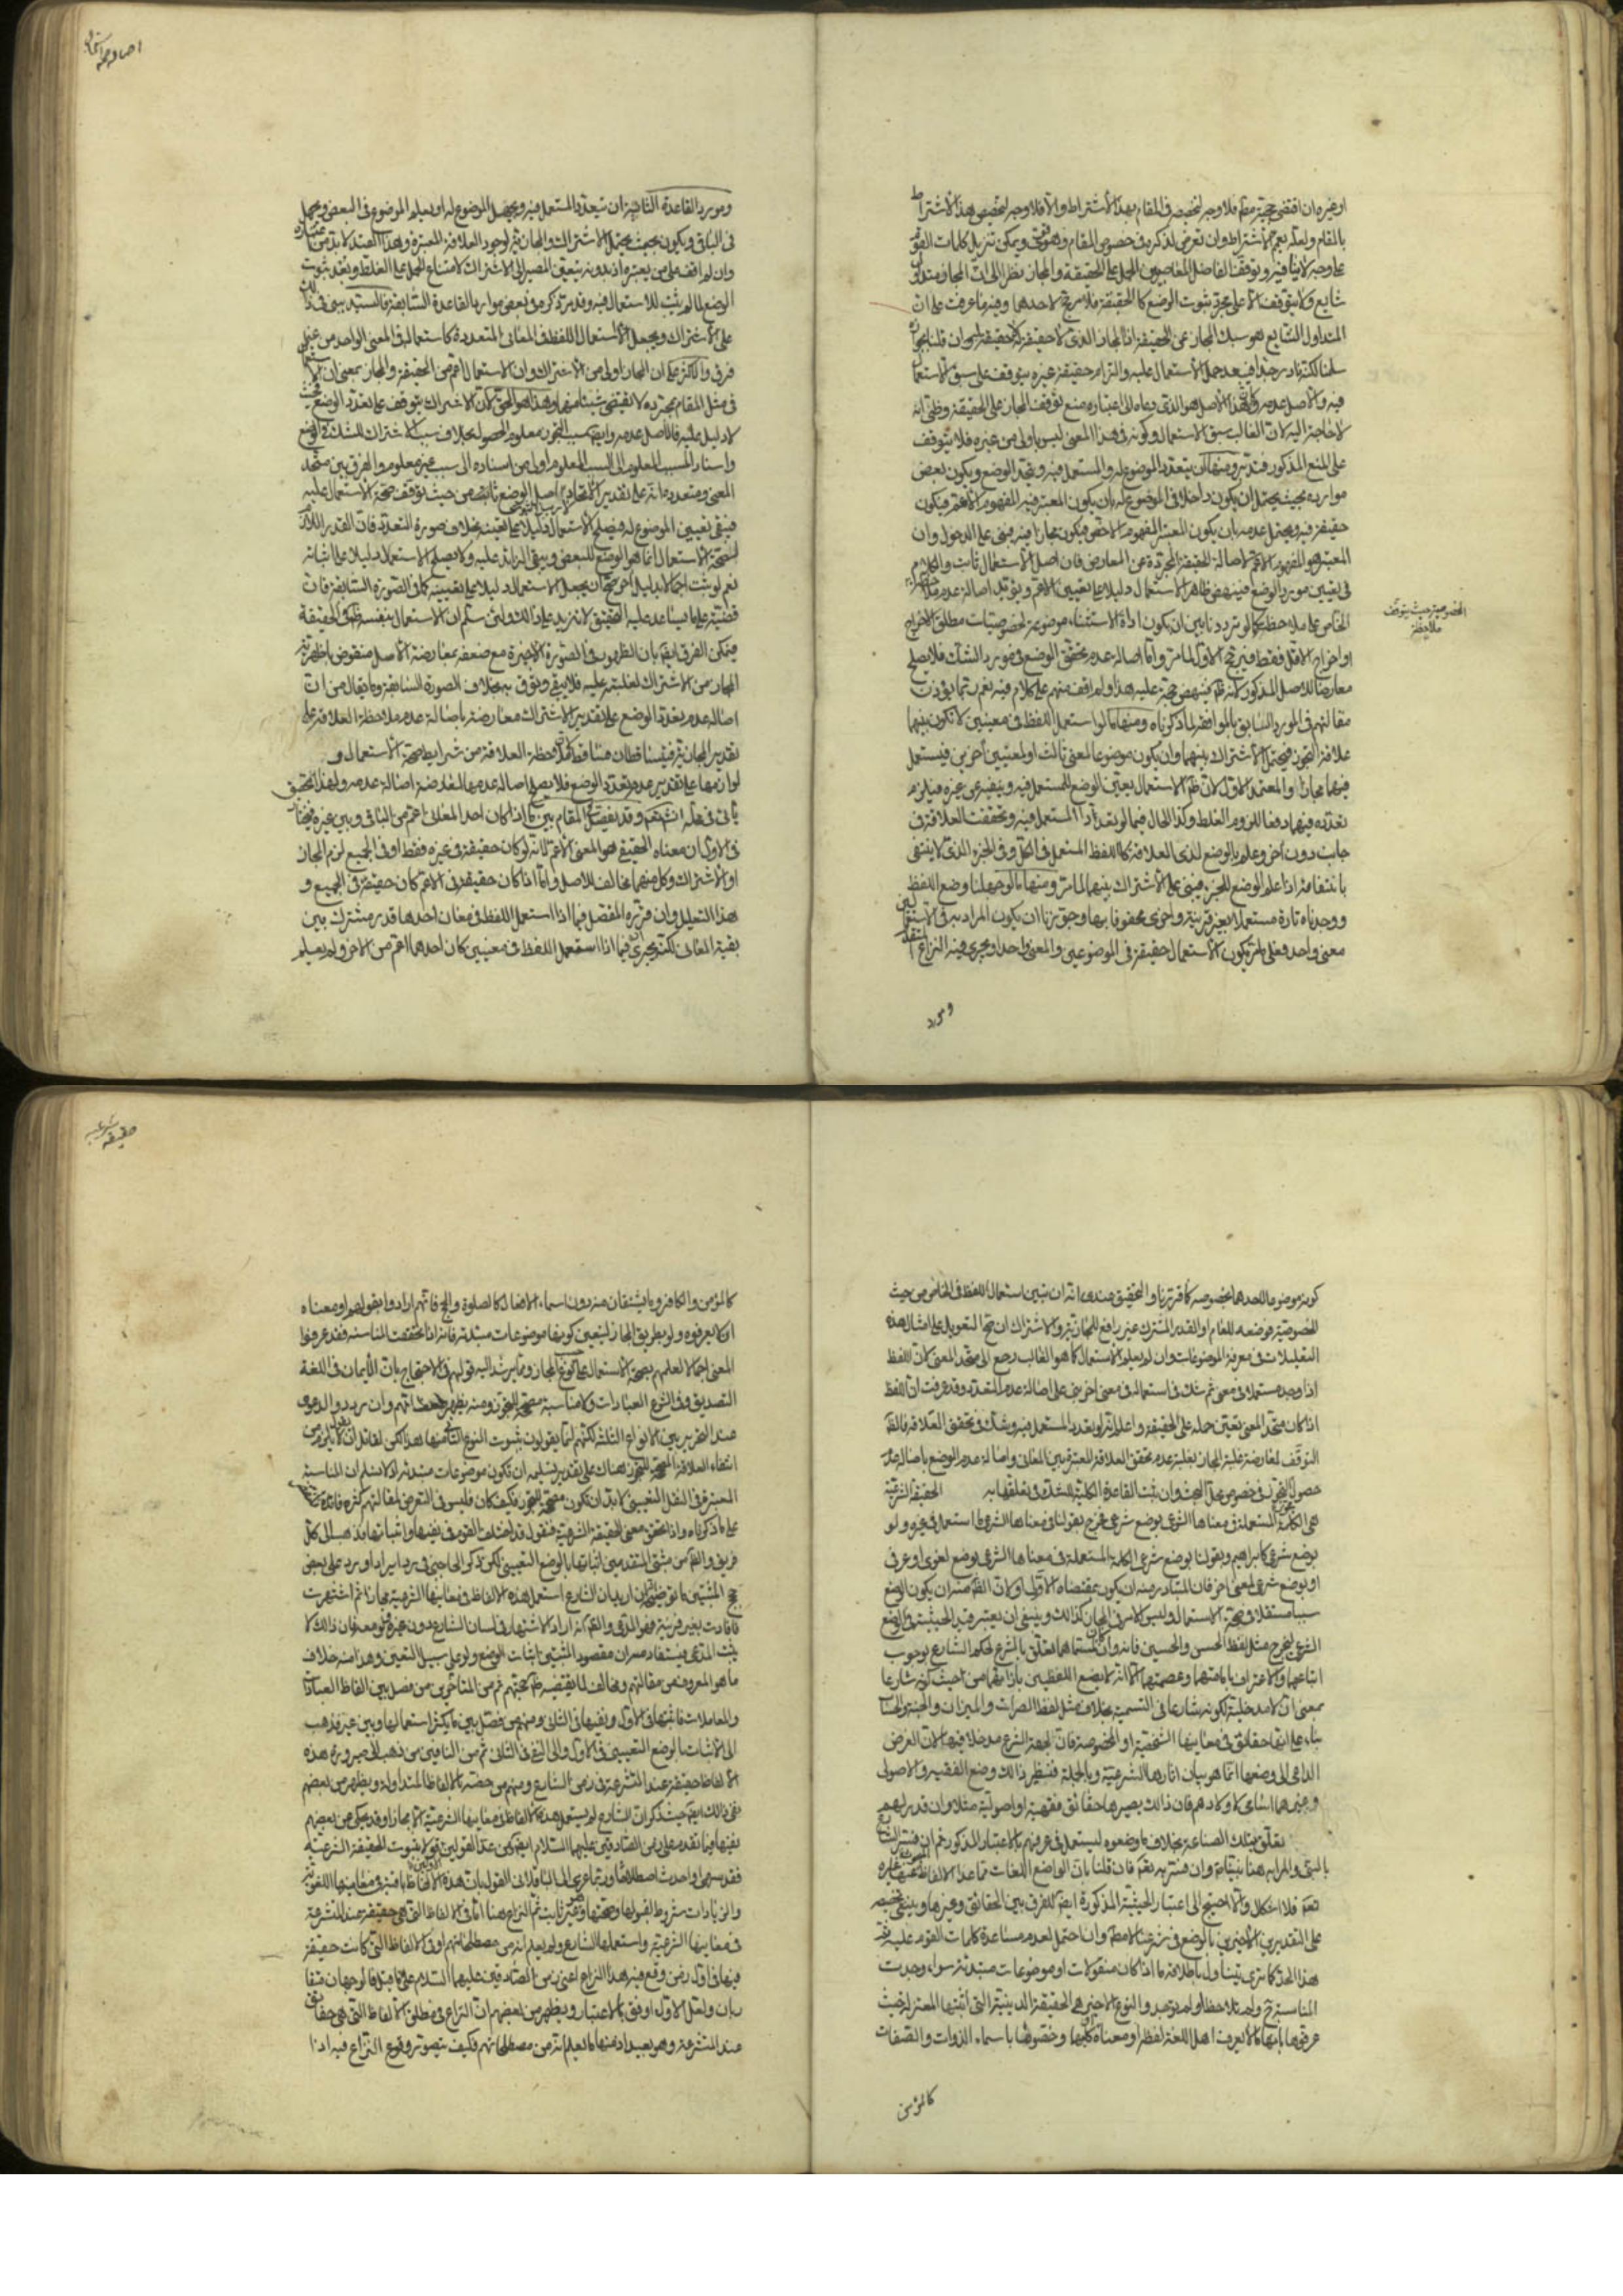 او غيره ان اقتضى حجية مقام فلا وجه لتخصيصه فى المقام بهذا الاشتراط والا فلا وجه لتخصيص هذا الاشتراط
بالمقام ولعله يعم الاشتراط وان تعرض لذكره فى خصوص المقام وهو ويمكن تنزيل كلمات القوم
على وجه لا ينافيه وتوقف الفاضل المعاصر بين الحمل على الحقيقة والمجاز نظرا الى ان المجاز متداول
شايع ولا يتوقف الا على مجرد ثبوت الوضع كالحقيقة فلا مرجح لاحدهما وفيه ما عرفت من ان
المتداول الشايع هو سبك المجاز عن الحقيقة اذ المجاز الذى لا حقيقة له
سلمنا لكنه نادر جدا فيبعد حمل الاستعمال عليه والتزام حقيقة غيره يتوقف على سبق الاستعمال
فيه والاصل عدمه وكان هذا الاصل هو الذى دعاه الى اعتباره منع توقف المجاز على الحقيقة وظنى انه
لا حاجة اليه لان الغالب سبق الاستعمال وكونه فى هذا المعنى ليس باولى من غيره فلا يتوقف
على المنع المذكور فتدبر ومنها ان يتعدد الموضوع له والمستعمل فيه ويتحد الوضع ويكون بعض
موارده بحيث يحتمل ان يكون داخلا فى الموضوع له بان يكون المعتبر فيه المفهوم الاعم فيكون
حقيقة فيه ويحتمل عدمه بان يكون المعتبر المفهوم الاخص فيكون مجازا فيه فيبنى على الدخول وان
المعتبر هو المفهوم الاعم لاصالة الحقيقة المجردة عن المعارض فان اصل الاستعمال ثابت والكلام
فى تعيين مورد الوضع فينهض ظاهر الاستعمال دليلا على تعيين الاعم ويؤيده اصالة عدم ملاحظة
الخاص على ملاحظة كما لو ترددنا بين ان يكون اداة الاستثناء موضوعة لخصوصيات مطلق الاخراج
او اخراج الاقل فقط فيرجح الاول لما مر واما اصالة عدم تحقق الوضع فى مورد الشك فلا يصلح
معارضا للاصل المذكور لانه ظاهر فينهض حجة عليه هذا ولم اقف منهم على كلام فيه نعم ربما يؤذن
مقالتهم فى المورد السابق بالموافقة لما ذكرناه ومنها ما لو استعمل اللفظ فى معنيين لا تكون بينهما
علاقة التجوز فيحتمل الاشتراك بينهما وان يكون موضوعا لمعنى ثالث او لمعنيين آخرين فيستعمل
فيهما مجازا والمعتمد الاول لان ظاهر الاستعمال يعين الوضع للمستعمل فيه وينفيه عن غيره فيلزم
تعدده فيهما دفعا للزوم الغلط وكذا الحال فيما لو تعدد المستعمل فيه وتحققت العلاقة فى
جانب دون آخر وعلم بالوضع لذى العلاقة كاللفظ المستعمل فى الكل وفى الجزء الذى لا ينتفى
بانتفائه اذا علم الوضع للجزء فيبنى على الاشتراك بينهما لما مر ومنها ما لو جهلنا وضع اللفظ
ووجدناه تارة مستعملا بغير قرينة واخرى محفوفا بها وجوزنا ان يكون المراد به فى الاستعمالين
معنى واحد فعلى ما مر يكون الاستعمال حقيقة فى الموضوعين والمعنى واحدا ويجرى فيه النزاع المتقدم
الخصوصية حيث يتوقف
ملاحظة
ومورد
اصالة عدم
ومورد القاعدة الثانية ان يتعدد المستعمل فيه ويجهل الموضوع له او يعلم الموضوع فى البعض ويجهل
فى الباقى ويكون بحيث يحتمل الاشتراك والمجازية لوجود العلاقة المعتبرة وهذا القيد لا بد من اعتباره
وان لم اقف على من يعتبره اذ بدونه يتعين المصير الى الاشتراك لامتناع الحمل على الغلط وبعد ثبوت
الوضع لما لم يثبت للاستعمال فيه وقد مر ذكره فى بعض موارد القاعدة السابقة فالسيد يبنى فى ذلك
على الاشتراك ويجعل الاستعمال اللفظ فى المعانى المتعددة كاستعماله فى المعنى الواحد من غير
فرق والاكثر على ان المجاز اولى من الاشتراك وان الاستعمال اعم من الحقيقة والمجاز بمعنى ان الاستعمال
فى مثل المقام بمجرده لا يقتضى شيئا منهما وهذا هو الحق لان الاشتراك يتوقف على تعدد الوضع فحيث
لا دليل عليه فالاصل عدمه وايضا سبب التجوز معلوم الحصول بخلاف سبب الاشتراك للشك فى الوضع
واسناد المسبب المعلوم الى السبب المعلوم اولى من اسناده الى سبب غير معلوم والفرق بين متحد
المعنى ومتعدده انه على تقدير الاتحاد اصل الوضع ثابت من حيث توقف صحة الاستعمال عليه
فيبقى تعيين الموضوع له فيصلح الاستعمال دليلا على تعيينه بخلاف صورة التعدد فان القدر اللازم
لصحة الاستعمال انما هو الوضع للبعض ويبقى الزائد عليه ولا يصلح الاستعمال دليلا على اثباته
نعم لو ثبت اجمالا بدليل آخر صح ان يجعل الاستعمال دليلا على تعيينه كما فى الصورة السابقة فان
قضية ما يساعد عليه التحقيق لا تزيد على ذلك ولئن سلم ان الاستعمال بنفسه ظاهر فى الحقيقة
فيمكن الفرق ايضا بان الظهور فى الصورة الاخيرة مع ضعفه بمعارضة الاصل منقوض باظهرية
المجاز من الاشتراك لغلبته عليه فلا يبقى وثوق به بخلاف الصورة السابقة وما يقال من ان
اصالة عدم تعدد الوضع على تقدير الاشتراك معارضة باصالة عدم ملاحظة العلاقة على
تقدير المجازية فيتساقطان فساقط لان ملاحظة العلاقة من شرايط صحة الاستعمال و
لوازمها على تقدير عدم تعدد الوضع فلا يصلح اصالة عدمها لمعارضة اصالة عدمه ولهذا تحقيق
يأتى فى محله انشاءالله وقد يفصل فى المقام بين ما اذا كان احد المعانى اعم من الباقى وبين غيره فيختار
فى الاول ان معناه الحقيقى هو المعنى الاعم لانه لو كان حقيقة فى غيره فقط او فى الجميع لزم المجاز
او الاشتراك وكل منهما مخالف للاصل واما اذا كان حقيقة فى الاعم كان حقيقة فى الجميع و
هذا التعليل وان قرره المفصل فيما اذا استعمل اللفظ فى معان احدها قدر مشترك بين
بقية المعانى لكنه يجرى فيما اذا استعمل اللفظ فى معنيين كان احدهما اعم من الآخر ولم يعلم
كونه موضوعا لاحدهما بخصوصه كما قررنا والتحقيق عندى انه ان تبين استعمال اللفظ فى الخاص من حيث
الخصوصية فوضعه للعام او القدر المشترك غير رافع للمجازية والاشتراك ان صح التعويل على امثال هذه
التعليلات فى معرفة الموضوعات وان لم يعلم الاستعمال كما هو الغالب رجع الى متحد المعنى لان اللفظ
اذا وجد مستعملا فى معنى ثم شك فى استعماله فى معنى آخر بنى على اصالة عدم التعدد وقد عرفت ان اللفظ
اذا كان متحد المعنى يتعين حمله على الحقيقة واعلم انه لو تعدد المستعمل فيه وشك فى تحقق العلاقة فالظاهر
التوقف لمعارضة غلبة المجاز بغلبة عدم تحقق العلاقة المعتبرة بين المعانى واصالة عدم الوضع باصالة عدم
حصول التجوز فى خصوص محل البحث وان ثبت القاعدة الكلية للشك فى تعلقها به الحقيقة الشرعية
هى الكلمة المستعملة فى معناها الشرعى بوضع شرعى فخرج بقولنا فى معناها الشرعى ما استعمل فى غيره ولو
بوضع شرعى كابراهيم وبقولنا بوضع شرعى الكلمة المستعملة فى معناها الشرعى بوضع لغوى او عرفى
او بوضع شرعى لمعنى آخر فان المتبادر منه ان يكون بمقتضاه الاول او لان الظاهر منه ان يكون الوضع
سببا مستقلا فى صحة الاستعمال وليس الامر فى المجاز كذلك وينبغى ان يعتبر قيد الحيثية فى الوضع
الشرعى ليخرج مثل لفظ الحسن والحسين فانه وان كان لمسماهما تعلق بالشرع لحكم الشارع بوجوب
اتباعهما والاعتراف بامامتهما وعصمتهما الا انه لم يضع اللفظين بازائهما من حيث كونه شارعا
بمعنى ان لا مدخلية لكونه شارعا فى التسمية بخلاف مثل لفظ الصراط والميزان والجنة والحساب
بناء على انها حقائق فى معانيها الشخصية او المخصوصة فان لجهة الشرع مدخلا فيها لان الغرض
الداعى الى وضعها انما هو بيان آثارها الشرعية وبالجملة فنظير ذلك وضع الفقيه والاصولى
وغيرهما اسامى لاولادهم فان ذلك لا يصيرها حقائق فقهية او اصولية مثلا وان قدر لهم
تعلق بتلك الصناعة بخلاف ما وضعوه ليستعمل فى عرفهم بالاعتبار المذكور ثم ان فسر الشارع
بالنبى والمراد به هنا نبينا وان فسر به تعالى فان قلنا بان الواضع اللغات مما عدا الالفاظ غيره
تعالى فلا اشكال والا احتيج الى اعتبار الحيثية المذكورة ايضا للفرق بين الحقائق وغيرها وينبغى تخصيصه
على التقديرين الاخيرين بالوضع فى شرعنا وان احتمل لعدم مساعدة كلمات القوم عليه ثم
هذا الحد كما ترى يتناول باطلاقه ما اذا كان منقولات او موضوعات مبتدئة سواء وجدت
المناسبة ولم تلاحظ او لم توجد والنوع الاخير هى الحقيقة الدينية التى اثبتها المعتزلة حيث
عرفوها بانها ما لا يعرف اهل اللغة لفظه او معناه او كليهما وخصوها باسماء الذوات والصفات
كالمؤمن
حقيقة شرعية
كالمؤمن والكافر وما يشتقان منه دون اسماء الافعال كالصلوة والحج فانهم ارادوا بقولهم او معناه
ان لا يعرفوه ولو بطريق المجاز ليتعين كونها موضوعات مبتدئة فانه اذا تحققت المناسبة فقد عرفوا
المعنى اجمالا لعلمهم بصحة الاستعمال على نوع المجاز ومما يرشد اليه قولهم فى الاحتجاج بان الايمان فى اللغة
التصديق وفى الشرع العبادات ولا مناسبة مصححة للتجوز ومنه يظهر انهم وان رددوا الدعوى
عند التحرير بين الانواع الثلثة لكنهم انما يقولون بثبوت النوع الثانى منها هذا لكن لقائل ان يقول لا يلزم من
انتفاء العلاقة المصححة للتجوز هناك على تقدير تسليمه ان تكون موضوعات مبتدئة اذ لا نسلم ان المناسبة
المعتبرة فى النقل التعيينى لا بد ان تكون مصححة للتجوز وكيف كان فليس فى التعرض لمقالتهم كثير فائدة
على ما ذكرناه واذا تحقق معنى الحقيقة الشرعية فنقول قد اختلف القوم فى نفيها واثباتها فذهب الى كل
فريق والظاهر من مثبتى المتقدمين اثباتها بالوضع التعيينى لكن ذكر الحاجبى فى رد ايراد اورد على بعض
حجج المثبتين ما توضيحه ان اريد بان الشارع استعمل هذه الالفاظ فى معانيها الشرعية مجازا ثم اشتهرت
فافادت بغير قرينة فهو المدعى والظاهر انه اراد الاشتهار فى لسان الشارع دون غيره او مع غيره فان ذلك لا
يثبت المدعى فيستفاد منه ان مقصود المثبتين اثبات الوضع ولو على سبيل التعين وهذا منه خلاف
ما هو المعروف من مقالتهم ومخالف لما يقتضيه ظاهر حججهم ثم من المتأخرين من فصل بين الفاظ العبادات
والمعاملات فاثبتها فى الاول ونفيها فى الثانى ومنهم من فصل بين ما يكثر استعمالها وبين غيره فذهب
الى الاثبات بالوضع التعيينى فى الاول والى النفى فى الثانى ثم من النافين من ذهب الى صيرورة هذه
الالفاظ حقيقة عند المتشرعة فى زمن الشارع ومنهم من خصه بالالفاظ المتداولة ويظهر من بعضهم
نفى ذلك ايضا حيث ذكر ان الشارع لم يستعمل هذه الالفاظ فى معانيها الشرعية الا مجازا وقد يحكى عن بعضهم
نفيها فيما تقدم على زمن الصادقين عليهما السلام ايضا ومن عدا القولين بثبوت الحقيقة الشرعية
فقد سهى او احدث اصطلاحا وربما عزى الى الباقلانى القول بان هذه الالفاظ باقية فى معانيها اللغوية
والزيادات شروط لقبولها وصحتها وغير ثابت ثم النزاع هنا اما فى الالفاظ التى هى حقيقة عند المتشرعة
فى معانيها الشرعية واستعملها الشارع ولم يعلم انه من مصطلحاتهم او فى الالفاظ التى كانت حقيقة
فيها فى اول زمن وقع فيه هذا النزاع اعنى زمن الصادقين عليهما السلام على ما قيل فالوجهان متقا
ربان ولعل الاول اوفق بالاعتبار ويظهر من بعضهم ان النزاع فى مطلق الالفاظ التى هى حقائق
عند المتشرعة وهو بعيد اذ منها ما نعلم انه من مصطلحاتهم فكيف يتصور وقوع النزاع فيه اذا